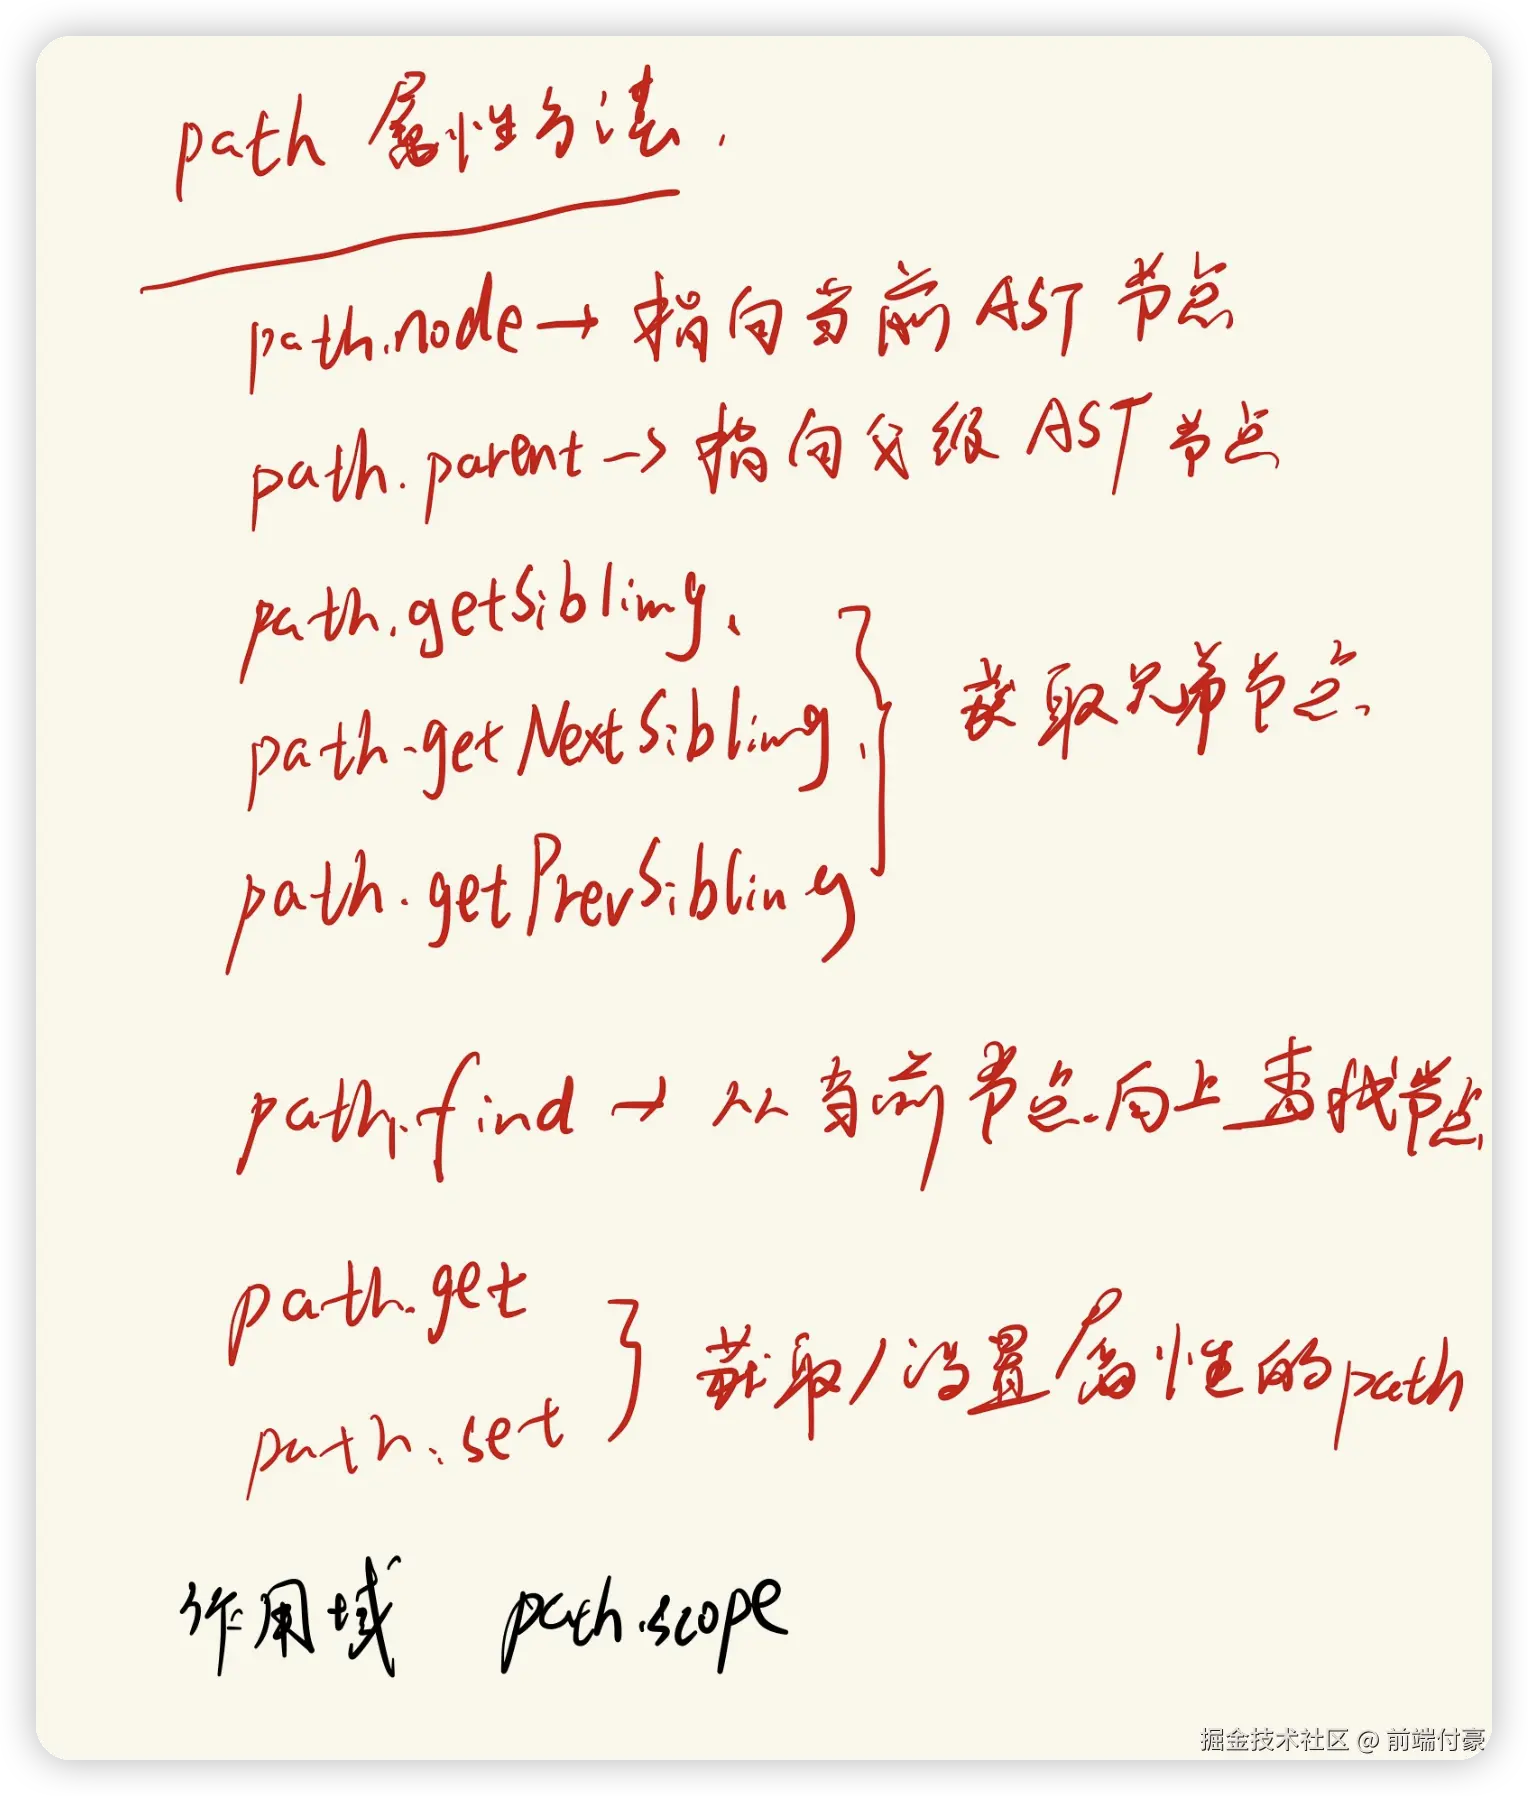 path 属性方法.
path.node → 指向当前 AST 节点
path.parent → 指向父级 AST 节点
path.getSibling、
path.getNextSibling、
获取兄弟节点
path.getPrevSibling
path.find → 从当前节点向上查找节点
path.get
获取/设置属性的path
path.set
作用域 path.scope
掘金技术社区 @ 前端付豪